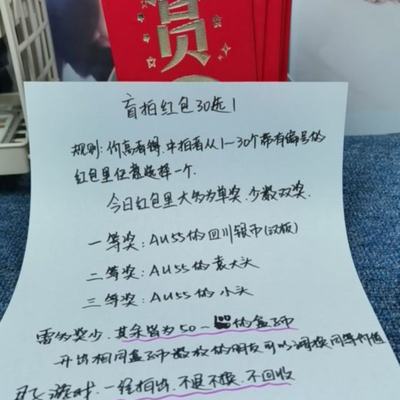 賞
盲拍红包30选1
规则:价高者得,中拍者从1—30个带有编号的
红包里任意选择一个.
今日红包里大多为单奖,少数双奖.
一等奖:AU55的四川银币(汉版)
二等奖:AU55的袁大头
三等奖:AU55的小头
雷多奖少,其余皆为50—的盒子币
开出相同盒子币数枚的朋友可以调换同等价值
游戏时,一经拍出,不退不换,不回收